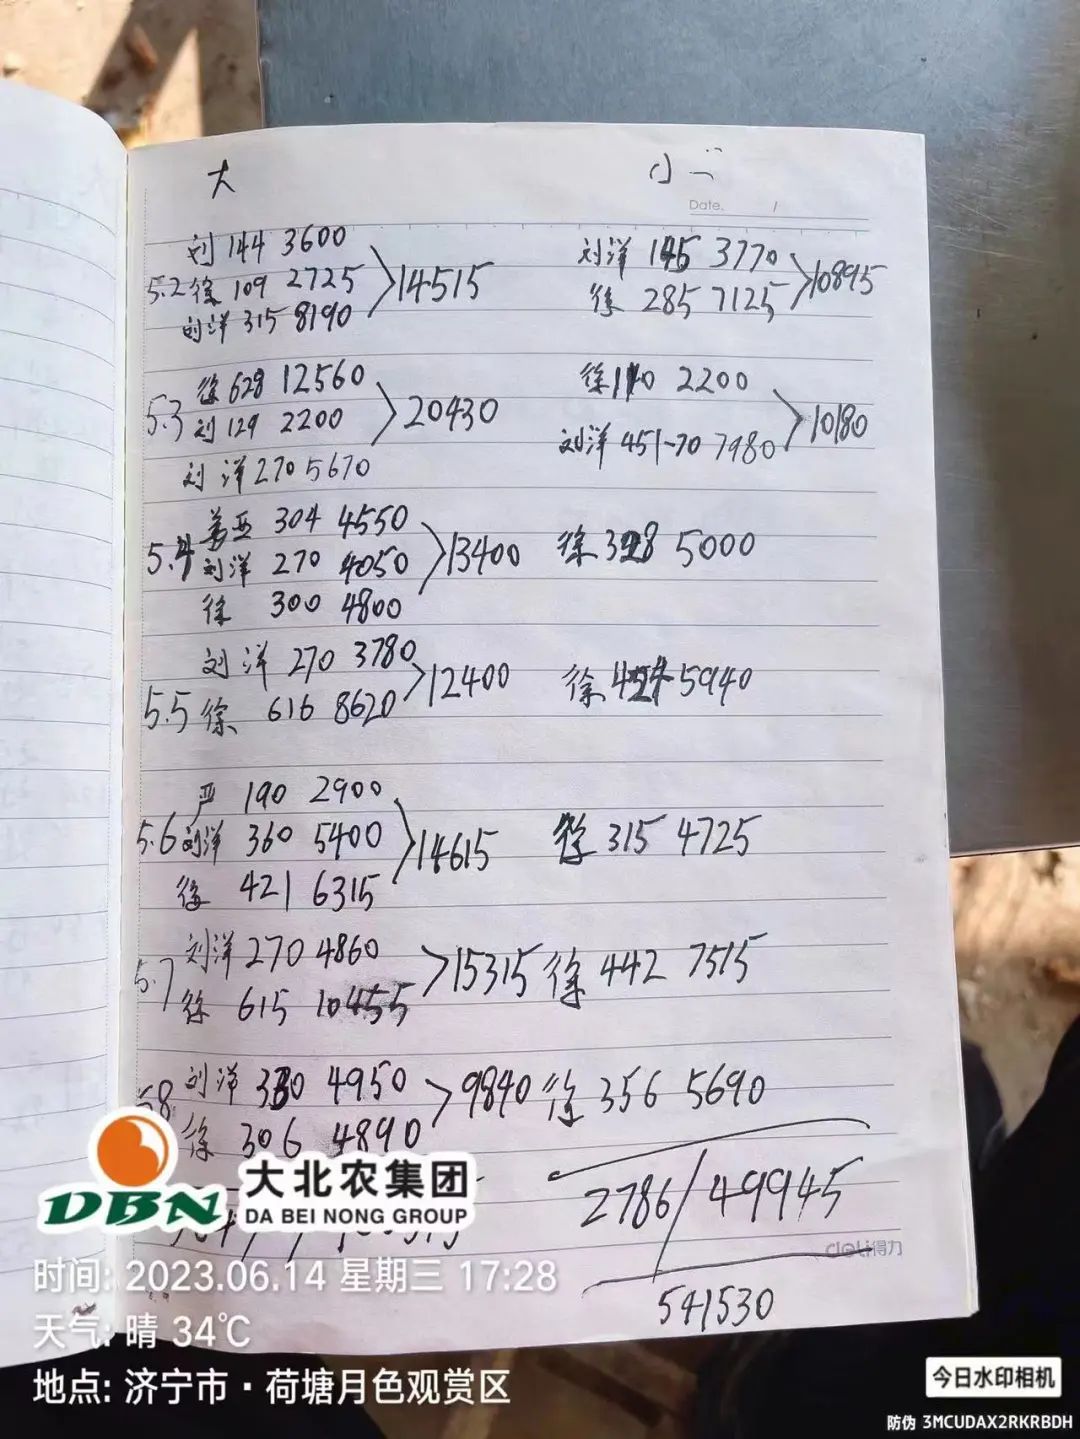 大 小
Date. /
刘 144 3600
5.2 徐 109 2725 14515
刘洋 315 8190
刘洋 145 3770
徐 285 7125 10895
徐 628 12560
5.3 刘 129 2200 20430
刘洋 270 5670
徐 110 2200
刘洋 451-70 7980 10180
304 4550
5.4 刘洋 270 4050 13400
徐 300 4800
徐 328 5000
刘洋 270 3780
5.5 徐 616 8620 12400
徐 424 5940
严 190 2900
5.6 刘洋 360 5400 14615
徐 421 6315
徐 315 4725
刘洋 270 4860
5.7 徐 615 10455 15315
徐 442 7515
刘洋 330 4950
5.8 徐 306 4890 9840
徐 356 5690
2786/49945
deli得力
541530
DBN 大北农集团
DA BEI NONG GROUP
时间: 2023.06.14 星期三 17:28
天气: 晴 34℃
地点: 济宁市·荷塘月色观赏区
今日水印相机
防伪 3MCUDAX2RKRBDH